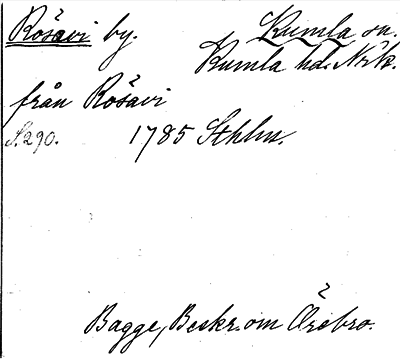 Rösavi by. Kumla sn.
Kumla hd. Nrk.
från Rösavi
S. 290. 1785 Sthlm.
Bagge, Beskr. om Örebro.